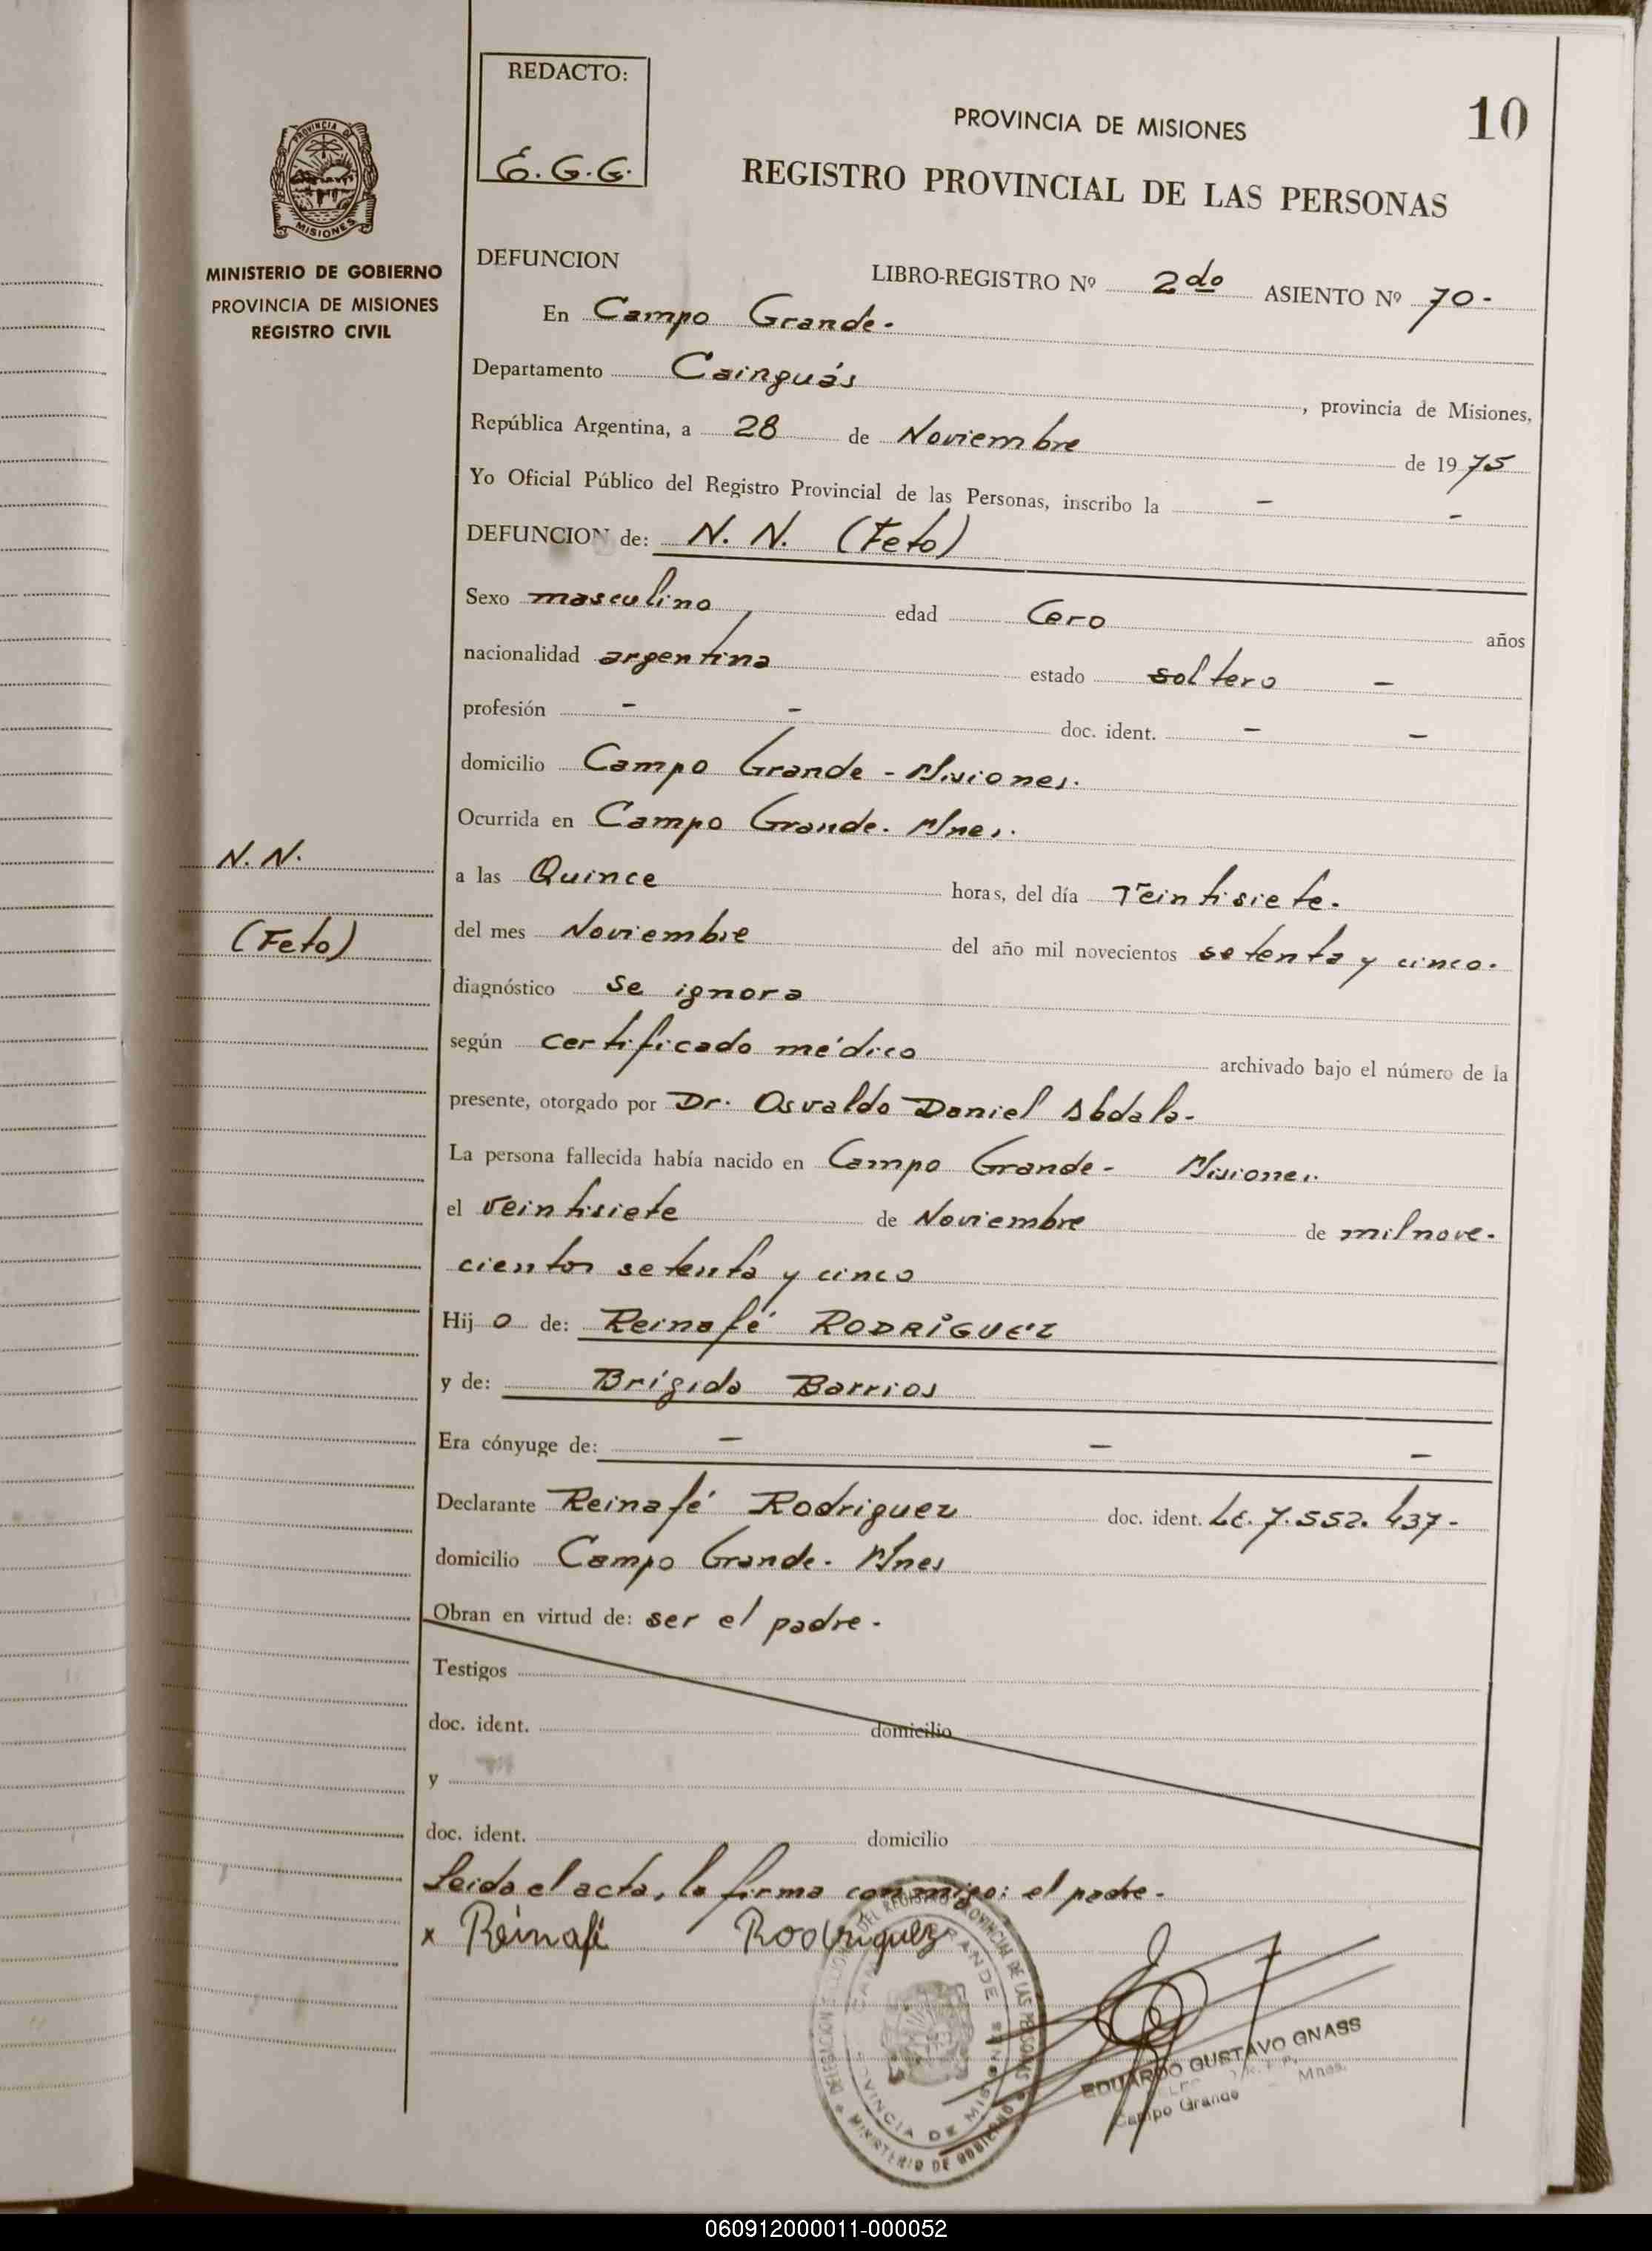 REDACTO:
E.G.G.
10
PROVINCIA DE MISIONES
REGISTRO PROVINCIAL DE LAS PERSONAS
PROVINCIA DE
MISIONES
MINISTERIO DE GOBIERNO
PROVINCIA DE MISIONES
REGISTRO CIVIL
DEFUNCION LIBRO-REGISTRO Nº 2do ASIENTO Nº 70-
En Campo Grande-
Departamento Cainguás, provincia de Misiones,
República Argentina, a 28 de Noviembre de 1975
Yo Oficial Público del Registro Provincial de las Personas, inscribo la - -
DEFUNCION de: N. N. (Feto)
Sexo masculino, edad Cero años
nacionalidad argentina estado soltero -
profesión - - doc. ident. - -
domicilio Campo Grande - Misiones.
Ocurrida en Campo Grande. Mnes.
N. N.
(Feto)
a las Quince horas, del día Veintisiete.
del mes Noviembre del año mil novecientos setenta y cinco.
diagnóstico se ignora
según certificado médico archivado bajo el número de la
presente, otorgado por Dr. Osvaldo Daniel Abdala-
La persona fallecida había nacido en Campo Grande - Misiones.
el veintisiete de Noviembre de mil nove-
cientos setenta y cinco
Hijo de: Reinafé RODRÍGUEZ
y de: Brígida Barrios
Era cónyuge de: - - -
Declarante Reinafé Rodriguez doc. ident. LE. 7.552.437-
domicilio Campo Grande. Mnes
Obran en virtud de: ser el padre.
Testigos
doc. ident. domicilio
y
doc. ident. domicilio
Leida el acta, la firma conmigo: el padre-
x Reinafé Rodriguez
DELEGACION DEL REGISTRO PROVINCIAL DE LAS PERSONAS
CAMPO GRANDE
PROVINCIA DE MISIONES
MINISTERIO DE GOBIERNO
EDUARDO GUSTAVO GNASS
Campo Grande Mnes.
060912000011-000052